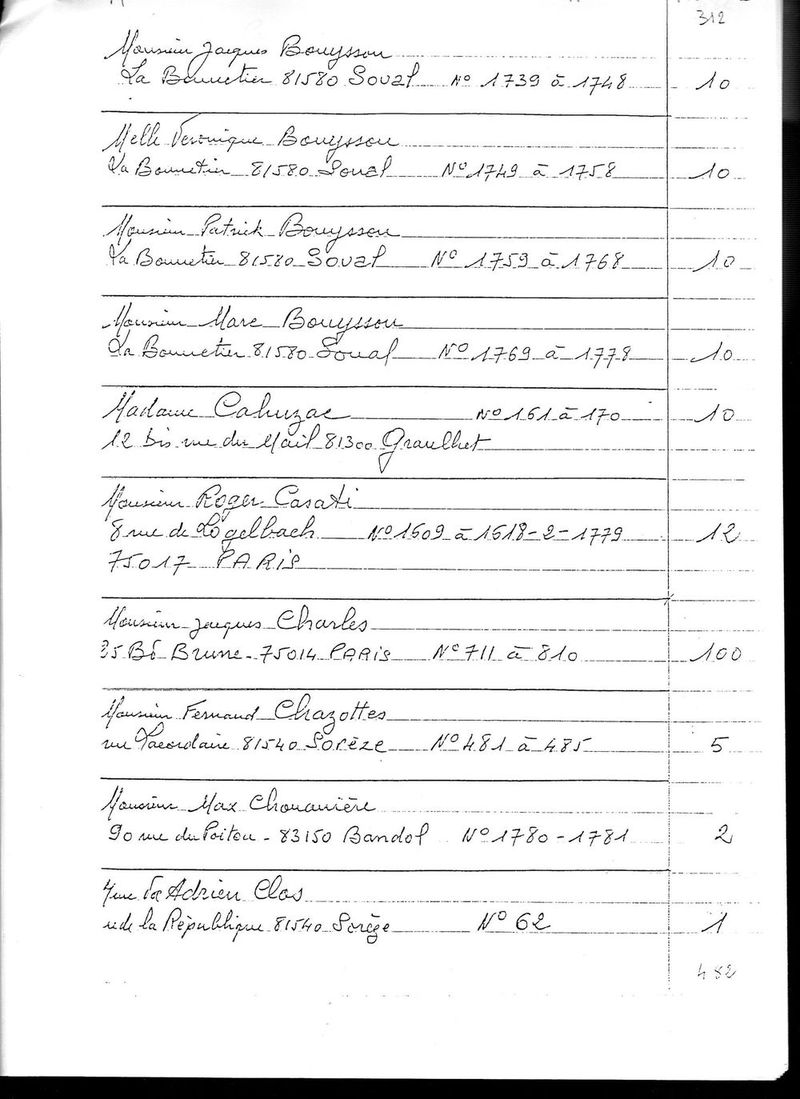 312
Monsieur Jacques Bouysson
La Bonnetier 81580 Soual N° 1739 à 1748 10
Melle Veronique Bouysson
La Bonnetier 81580 Soual N° 1749 à 1758 10
Monsieur Patrick Bouysson
La Bonnetier 81580 Soual N° 1759 à 1768 10
Monsieur Marc Bouysson
La Bonnetier 81580 Soual N° 1769 à 1778 10
Madame Cahuzac N° 161 à 170 10
12 bis rue du Mail 81300 Graulhet
Monsieur Roger Casati
8 rue de Logelbach N° 1609 à 1618-2-1779 12
75017 PARIS
Monsieur Jacques Charles
35 Bd Brune - 75014 PARIS N° 711 à 810 100
Monsieur Fernand Chazottes
rue Lacordaire 81540 Sorèze N° 481 à 485 5
Monsieur Max Chouanière
90 rue du Poitou - 83150 Bandol N° 1780 - 1781 2
Mme Adrien Clos
r de la République 81540 Sorèze N° 62 1
482